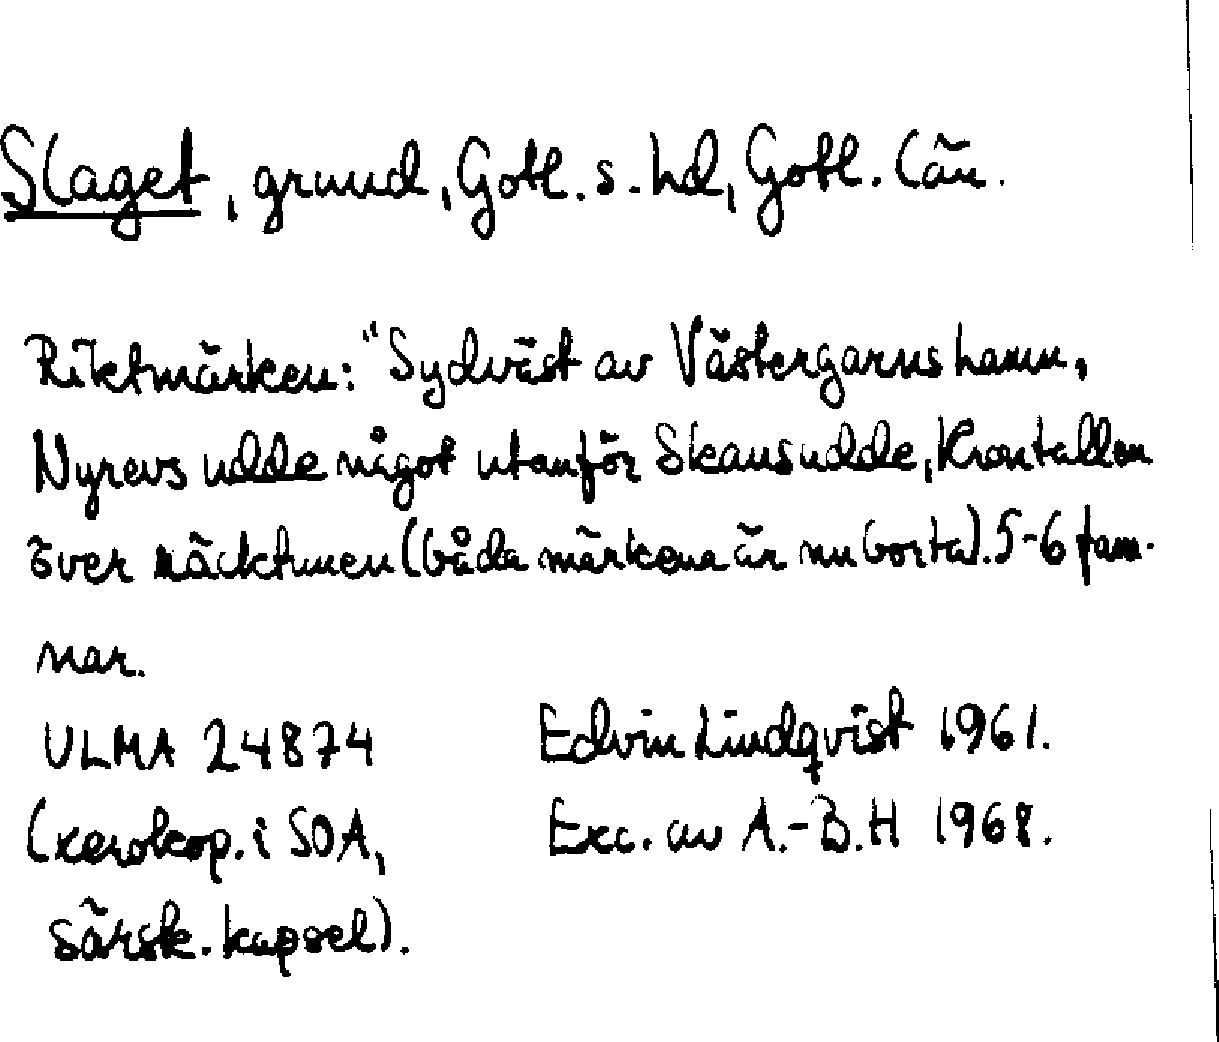 Slaget, grund, Gotl. s. hd, Gotl. län.
Riktmärken: "Sydväst av Västergarns hamn,
Nyrevs udde något utanför Skansudde, Krontallen
över (båda märkena är nu borta). 5-6 fam-
nar.
ULMA 24874
(xerokop. i SOA,
särsk. kapsel).
Edvin Lindqvist 1961.
Exc. av A.-B.H 1968.